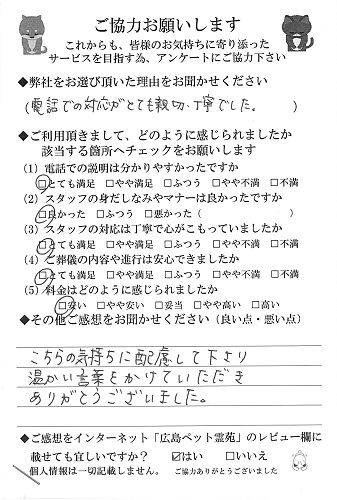 ご協力お願いします
これからも、皆様のお気持ちに寄り添った
サービスを目指す為、アンケートにご協力下さい
◆弊社をお選び頂いた理由をお聞かせください
(電話での対応がとても親切、丁寧でした。)
◆ご利用頂きまして、どのように感じられましたか
該当する箇所へチェックをお願いします
(1) 電話での説明は分かりやすかったですか
□とても満足 □やや満足 □ふつう □やや不満 □不満
(2) スタッフの身だしなみやマナーは良かったですか
□良かった □ふつう □悪かった ( )
(3) スタッフの対応は丁寧で心がこもっていましたか
□とても満足 □やや満足 □ふつう □やや不満 □不満
(4) ご葬儀の内容や進行は安心できましたか
□とても満足 □やや満足 □ふつう □やや不満 □不満
(5) 料金はどのように感じられましたか
□安い □やや安い □妥当 □やや高い □高い
◆その他ご感想をお聞かせください (良い点・悪い点)
こちらの気持ちに配慮して下より
温かい言葉をかけていただき
ありがとうございました。
◆ご感想をインターネット「広島ペット霊苑」のレビュー欄に
載せても宜しいですか? ☑はい □いいえ
個人情報は一切記載しません。 ご協力ありがとうございました